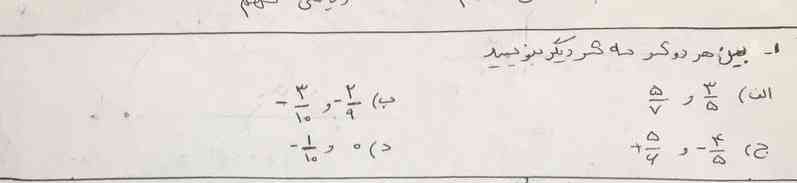 ریاضی نهم
۱- بین هر دو کسر سه کسر دیگر بنویسید
الف) ۳/۵ و ۵/۷ ب) -۲/۹ و -۳/۱۰
ج) -۴/۵ و +۵/۶ د) ۰ و -۱/۱۰